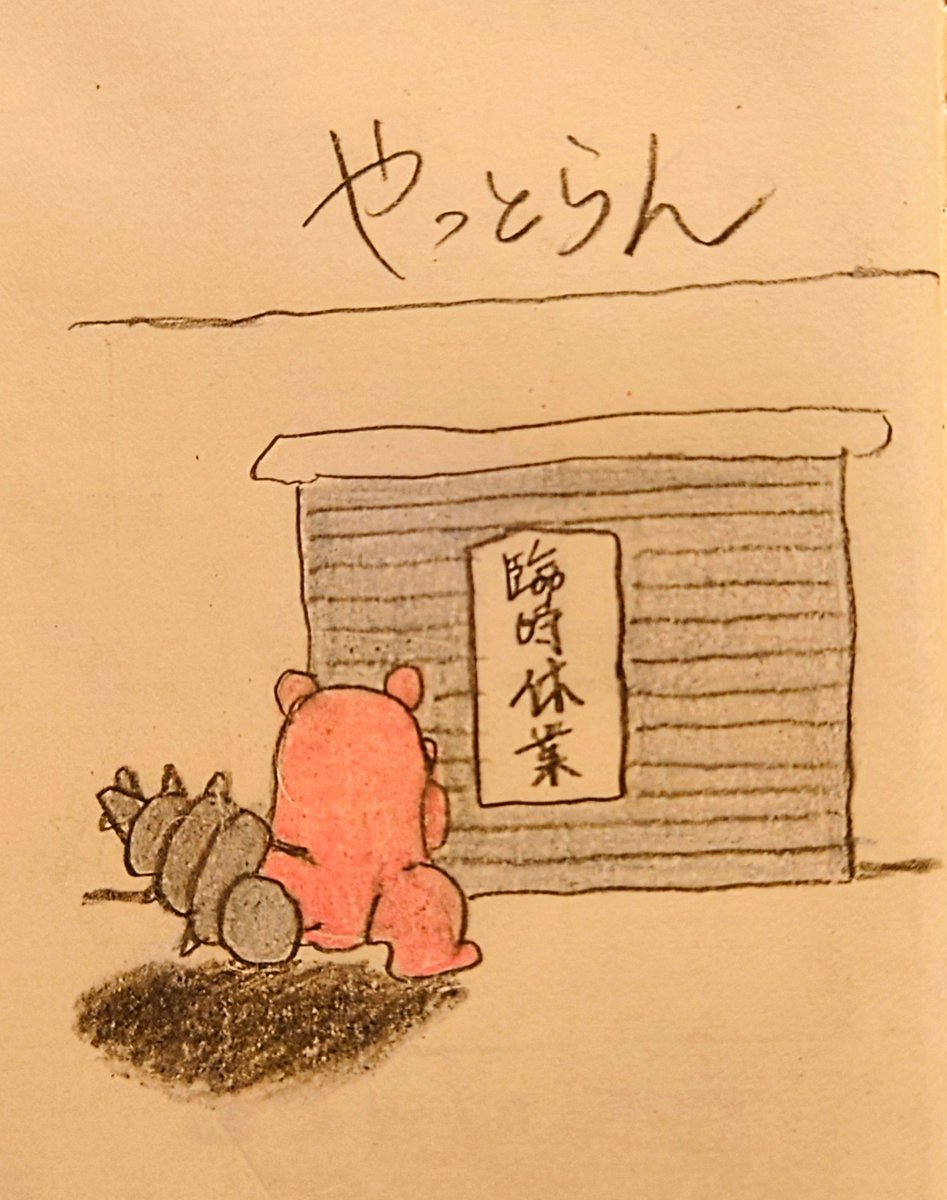 やっとらん
臨時休業